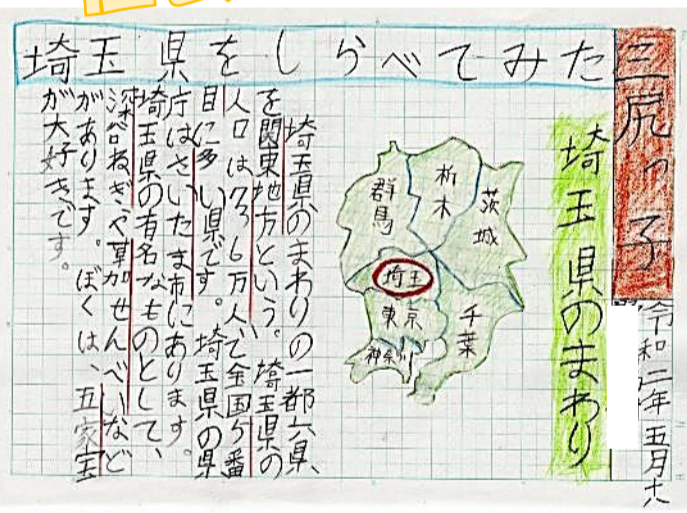 三尻っ子
令和二年五月十八
埼玉県をしらべてみた
埼玉県のまわり
群馬
栃木
茨城
埼玉
東京
千葉
神奈川
埼玉県のまわりの一都六県、
を関東地方という。埼玉県の
人口は736万人で全国5番
目に多い県です。埼玉県の県
庁はさいたま市にあります。
埼玉県の有名なものとして、
深谷ねぎや草加せんべいなど
があります。ぼくは、五家宝
が大好きです。